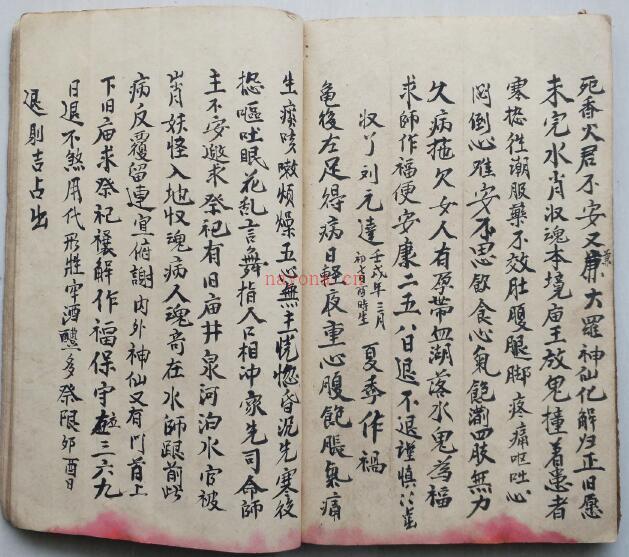 死香火君不安又屏葉大羅神仙化解归正旧愿
未完水肖汉魂本境庙王放鬼撞着患者
寒捻徃潮服藥不效肚腹腿脚疼痛呕吐心
闷倒心难安不思飲食心气飽满四肢無力
久病拖欠女人有孕帶血湖落水鬼為福
求師作福便安康二五八日退不退謹慎
收丫刘元達壬戌年三月初時生夏季作禍
亀後左足得病日輕夜重心腹飽脹氣痛
生痰咳嗽煩燥五心無主恍惚昏沉先寒後
捻嘔吐眠花乱言舞指人口相冲家先司命師
主不安邀求祭祀有旧庙井泉河泊水官被
肖妖怪入地收魂病人魂竒在水師跟前些
病反覆留連宜俯謝内外神仙又有门首上
下旧庙求祭祀禳解作福保守在三六九
日退不煞用代形牲宰酒醴多祭限卯酉日
退則吉占出
nayona.cn